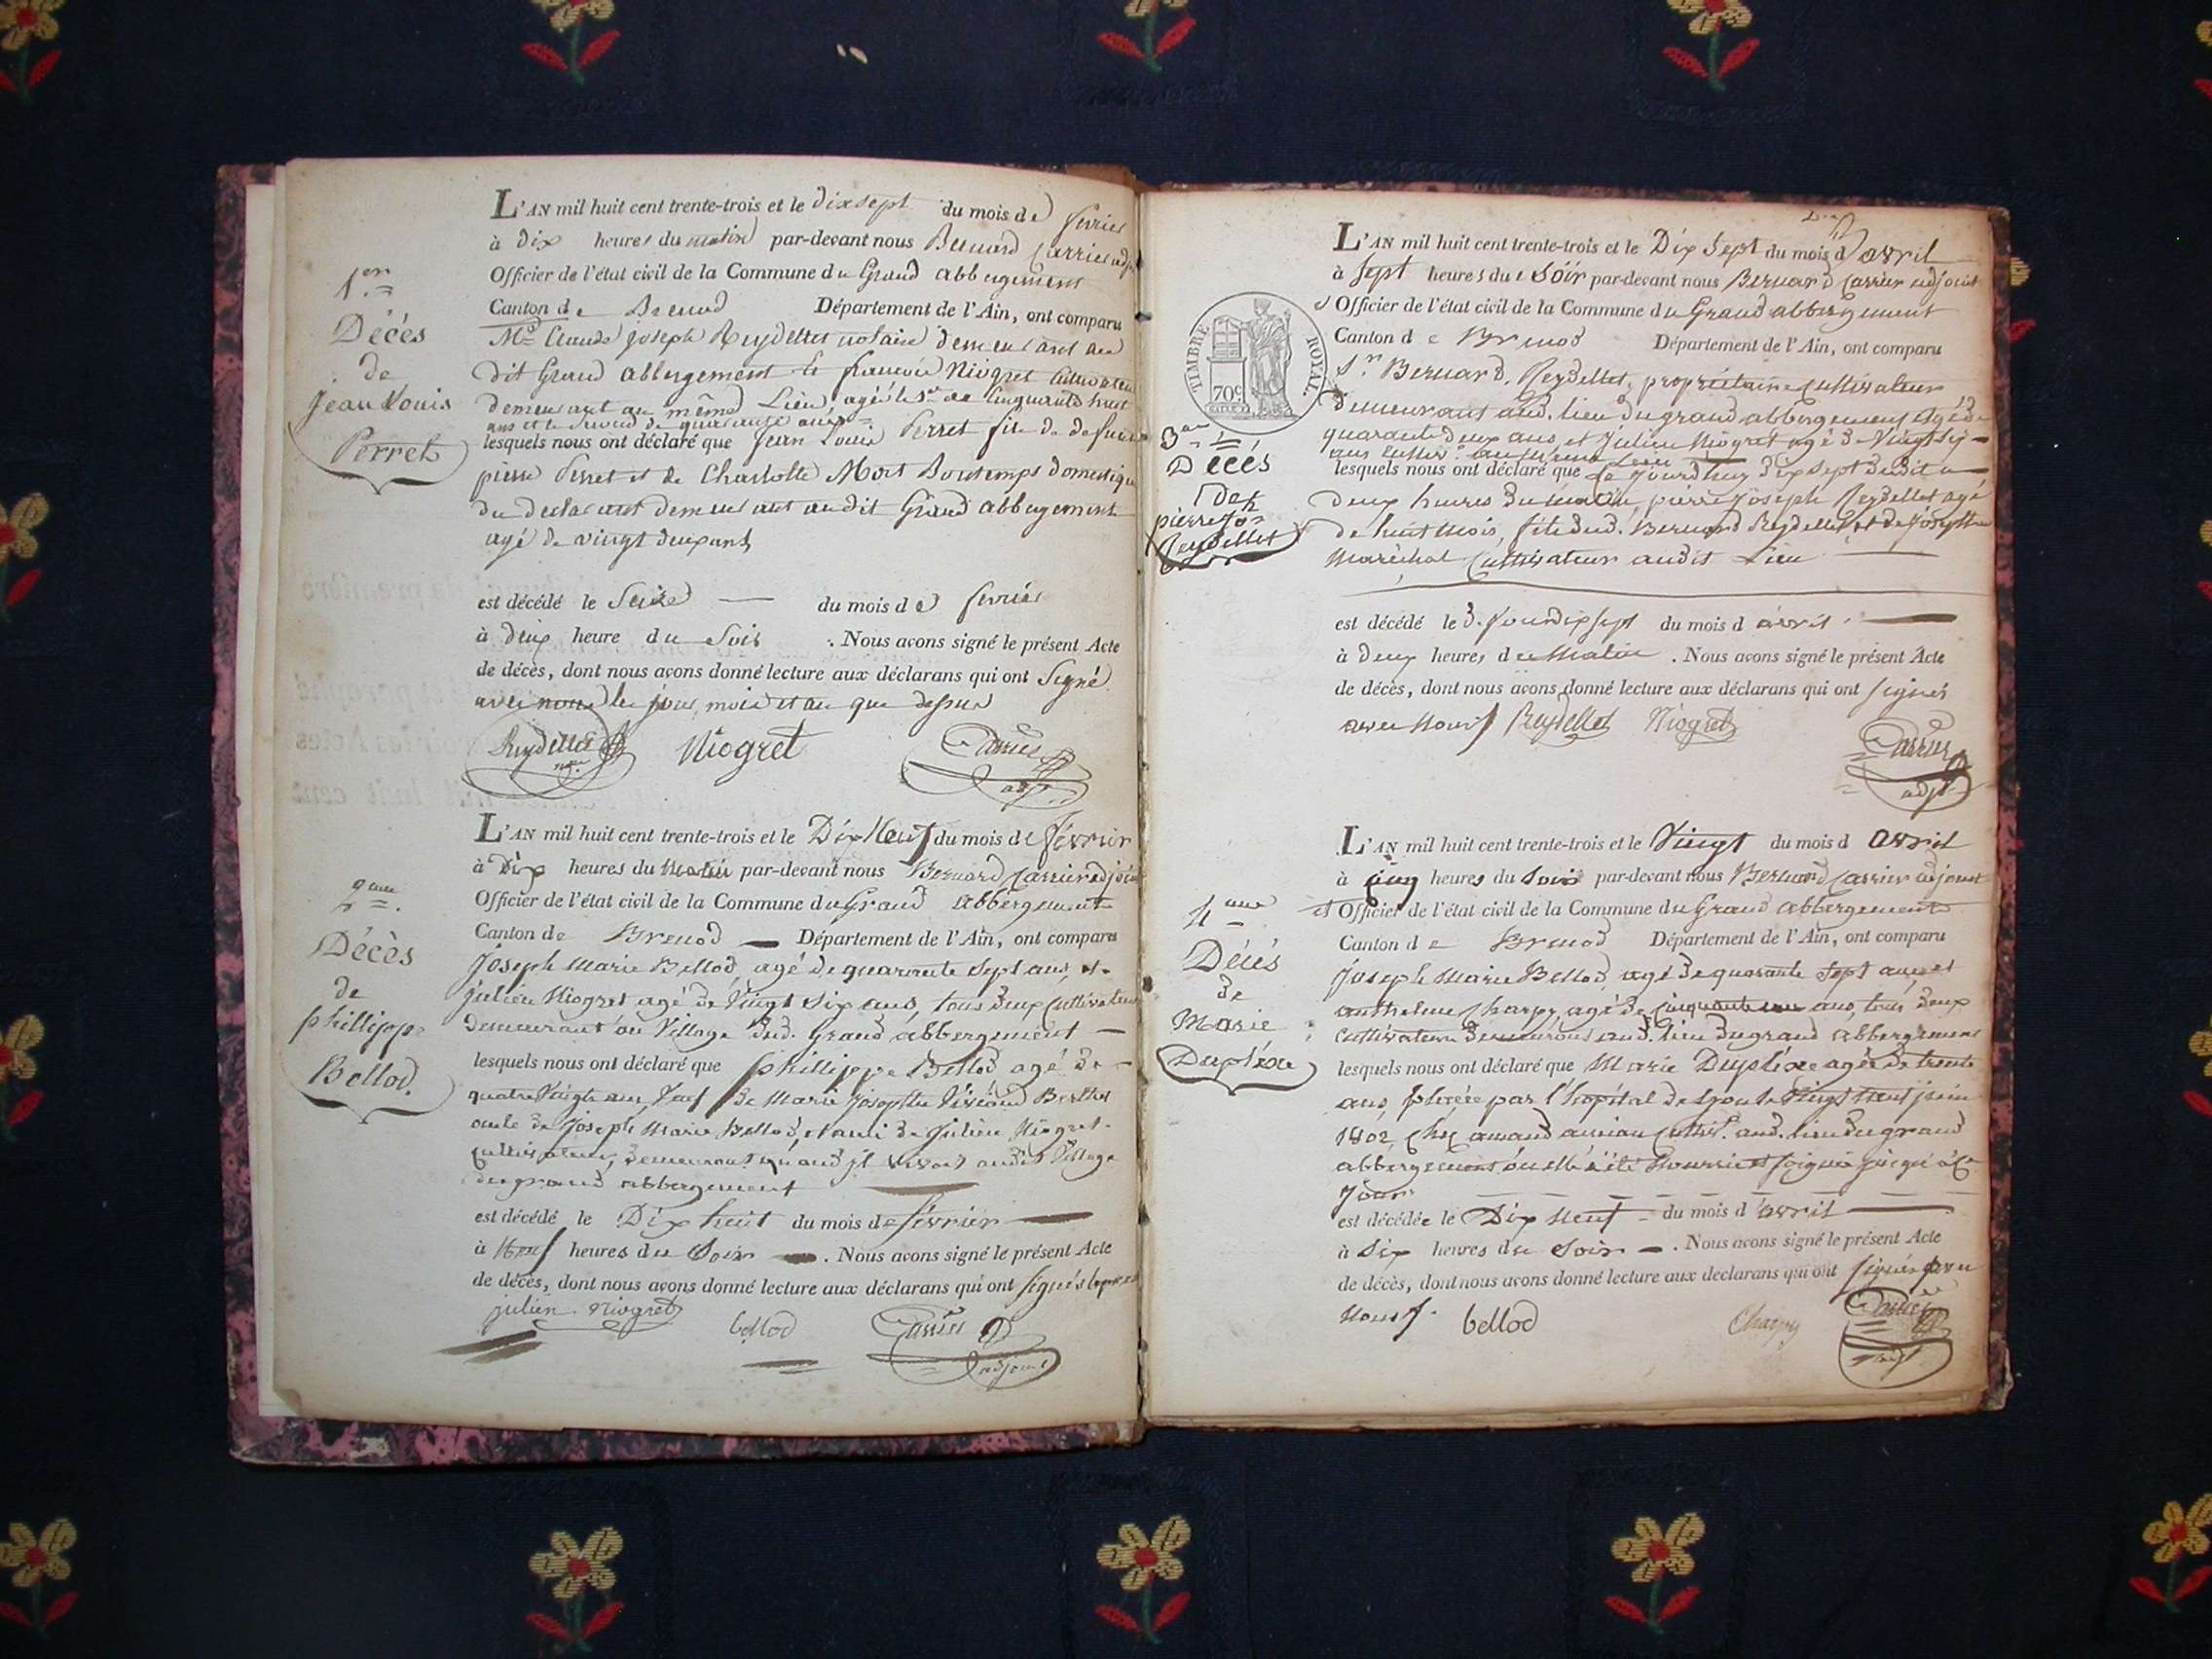 L'AN mil huit cent trente-trois et le dixsept du mois de fevrier
à dix heures du matin par-devant nous Bernard Carrier adj
Officier de l'état civil de la Commune du Grand abbergement
Canton de Brenod Département de l'Ain, ont comparu
Me Claude joseph Reydellet notaire demeurant au
dit Grand abbergement et françois Niogret cultivateur
demeurant au même Lieu, agé le 1er de cinquante huit
ans et le second de quarante ans
lesquels nous ont déclaré que Jean Louis Perret fils de defunt
pierre Perret et de Charlotte Mort Boutemps domestique
du declarant demeurant audit Grand abbergement
agé de vingt deux ans
est décédé le Seize du mois de fevrier
à deux heure du Soir . Nous avons signé le présent Acte
de décès, dont nous avons donné lecture aux déclarans qui ont Signé
avec nous les jour, mois et an que dessus
Reydellet Niogret Carrier
adj
1er
Décès
de
Jean Louis
Perret
L'AN mil huit cent trente-trois et le Dix Neuf du mois de février
à Dix heures du Matin par-devant nous Bernard Carrier adjoint
Officier de l'état civil de la Commune du Grand abbergement
Canton de Brenod Département de l'Ain, ont comparu
joseph Marie Bellod, agé de quarante Sept ans, et
julien Niogret agé de Vingt Six ans, tous deux Cultivateurs
demeurant au Village dud. Grand abbergement
lesquels nous ont déclaré que phillippe Bellod agé de
quatre Vingts ans, Veuf de Marie josephte Berthet
oncle de joseph Marie Bellod, et ami de julien Niogret
cultivateur, demeurant quand il vivoit audit Village
du grand abbergement
est décédé le Dix huit du mois de février
à Neuf heures du Soir . Nous avons signé le présent Acte
de décès, dont nous avons donné lecture aux déclarans qui ont signés
julien Niogret bellod Carrier
adjoint
2eme
Décès
de
phillippe
Bellod.
L'AN mil huit cent trente-trois et le Dix Sept du mois d'avril
à Sept heures du Soir par-devant nous Bernard Carrier adjoint
Officier de l'état civil de la Commune du Grand abbergement
Canton de Brenod Département de l'Ain, ont comparu
Sr. Bernard Reydellet, propriétaire Cultivateur
demeurant aud. lieu du grand abbergement agé de
quarante deux ans, et Julien Niogret agé de Vingt Six
ans cultivr. Lieu
lesquels nous ont déclaré que Ce jourdhuy dix sept dudit a
deux heures du matin, pierre joseph Reydellet agé
de huit Mois, fils dud. Bernard Reydellet, et de josephte
Maréchal Cultivateur audit Lieu
est décédé le d. jour dix sept du mois d avril
à deux heures du Matin . Nous avons signé le présent Acte
de décès, dont nous avons donné lecture aux déclarans qui ont signés
avec Nous Reydellet Niogret
Carrier
adjt
TIMBRE ROYAL
70c
3eme
Décés
de
pierre jos
Reydellet
L'AN mil huit cent trente-trois et le Vingt du mois d avril
à cinq heures du Soir par-devant nous Bernard Carrier adjoint
et Officier de l'état civil de la Commune du Grand abbergement
Canton de Brenod Département de l'Ain, ont comparu
joseph Marie Bellod, agé de quarante Sept ans et
anthelme Charpy, agé de cinquante ans, tous deux
cultivateurs demeurans aud. lieu du grand abbergement
lesquels nous ont déclaré que Marie Duplèxe agée de trente
ans, placée par l'hopital de Lyon le Vingt Neuf juin
1802 chez amand cultivr. aud. lieu du grand
abbergement ou elle a été Nourrie et soignée jusqu'à Ce
jour
est décédée le Dix Neuf du mois d'avril
à Six heures du Soir . Nous avons signé le présent Acte
de décès, dont nous avons donné lecture aux déclarans qui ont signés avec
Nous. bellod Charpy Carrier
adjt
4eme
Décés
de
Marie
Duplèxe